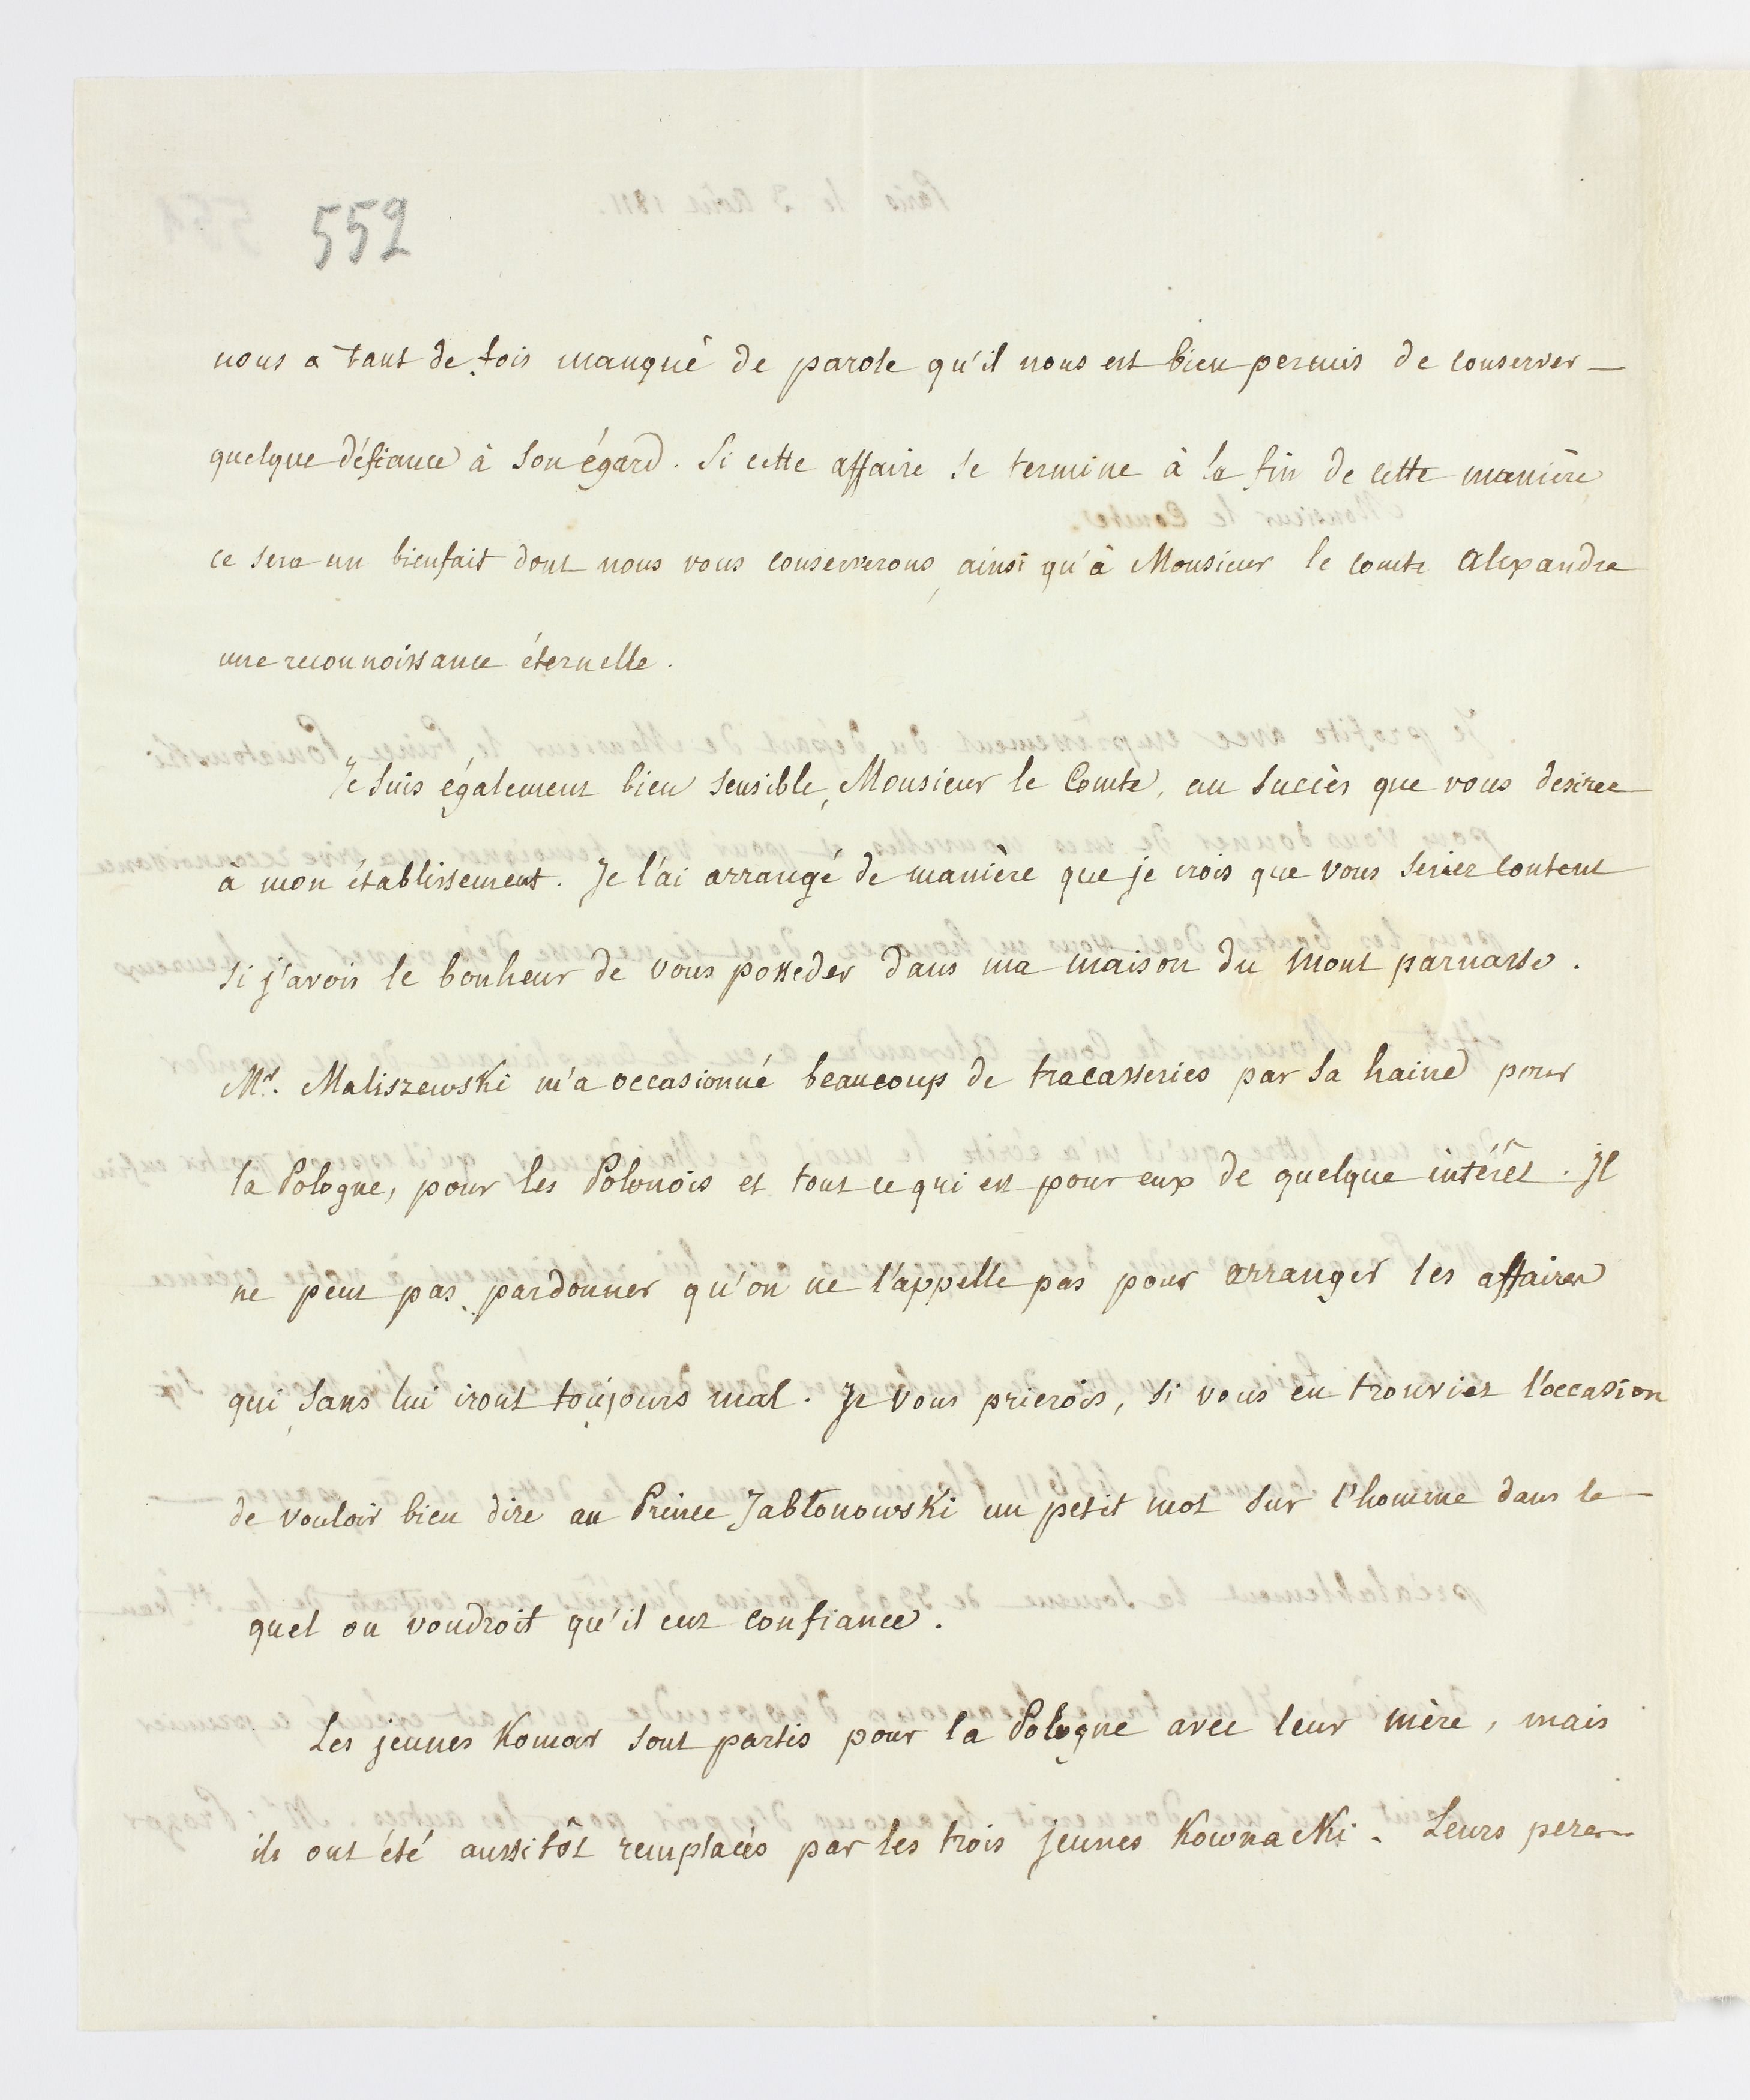 552
nous a tant de fois manqué de parole qu'il nous est bien permis de conserver
quelque défiance à son égard. Si cette affaire se termine à la fin de cette manière
ce sera un bienfait dont nous vous conserverons, ainsi qu'à Monsieur le comte Alexandre
une reconnoissance éternelle.
Je suis également bien sensible, Monsieur le Comte, au succès que vous desirez
à mon établissement. Je l'ai arrangé de manière que je crois que vous seriez content
si j'avois le bonheur de vous posseder dans ma maison du Mont parnasse.
Mr. Maliszewski m'a occasionné beaucoup de tracasseries par sa haine pour
la Pologne, pour les Polonois et tout ce qui est pour eux de quelque intérêt. Il
ne peut pas pardonner qu'on ne l'appelle pas pour arranger les affaires
qui sans lui iront toujours mal. Je vous prierois, si vous en trouviez l'occasion
de vouloir bien dire au Prince Jabłonowski un petit mot sur l'homme dans le
quel on voudroit qu'il eut confiance.
Les jeunes Komar sont partis pour la Pologne avec leur mère, mais
ils ont été aussitôt remplacés par les trois jeunes Kownacki. Leurs peres